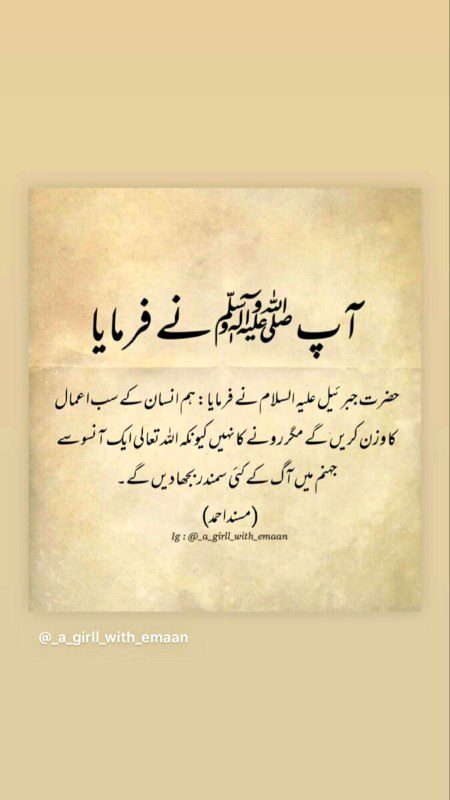 آپ ﷺ نے فرمایا
حضرت جبرئیل علیہ السلام نے فرمایا: ہم انسان کے سب اعمال
کا وزن کریں گے مگر رونے کا نہیں کیونکہ اللہ تعالی ایک آنسو سے
جہنم میں آگ کے کئی سمندر بجھا دیں گے۔
(مسند احمد)
Ig : @_a_girll_with_emaan
@_a_girll_with_emaan